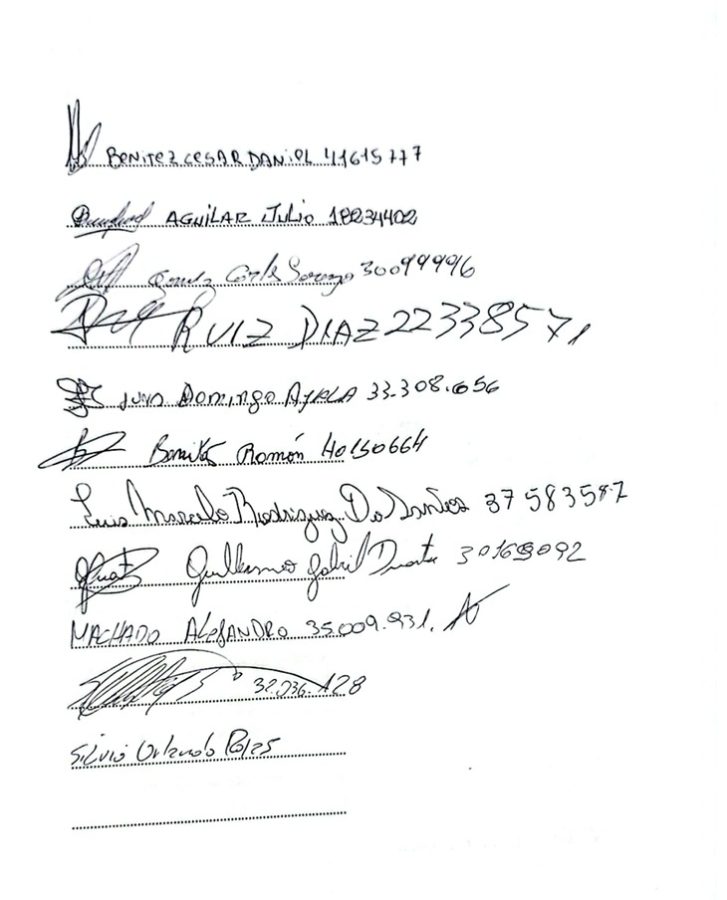 BENITEZ CESAR DANIEL 41615777
AGUILAR JULIO 18234402
30099996
RUIZ DIAZ 22338571
Juan Domingo AYALA 33.308.656
Benitez Ramón 40150664
Luis Marcelo Rodriguez Do Santos 37583587
Guillermo Gabriel Duarte 30169092
MACHADO ALEJANDRO 35.009.931.
32.236.128
Silvio Orlando